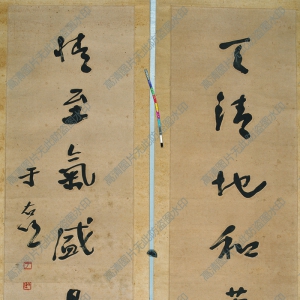 天清地和
情至氣盛
于右任